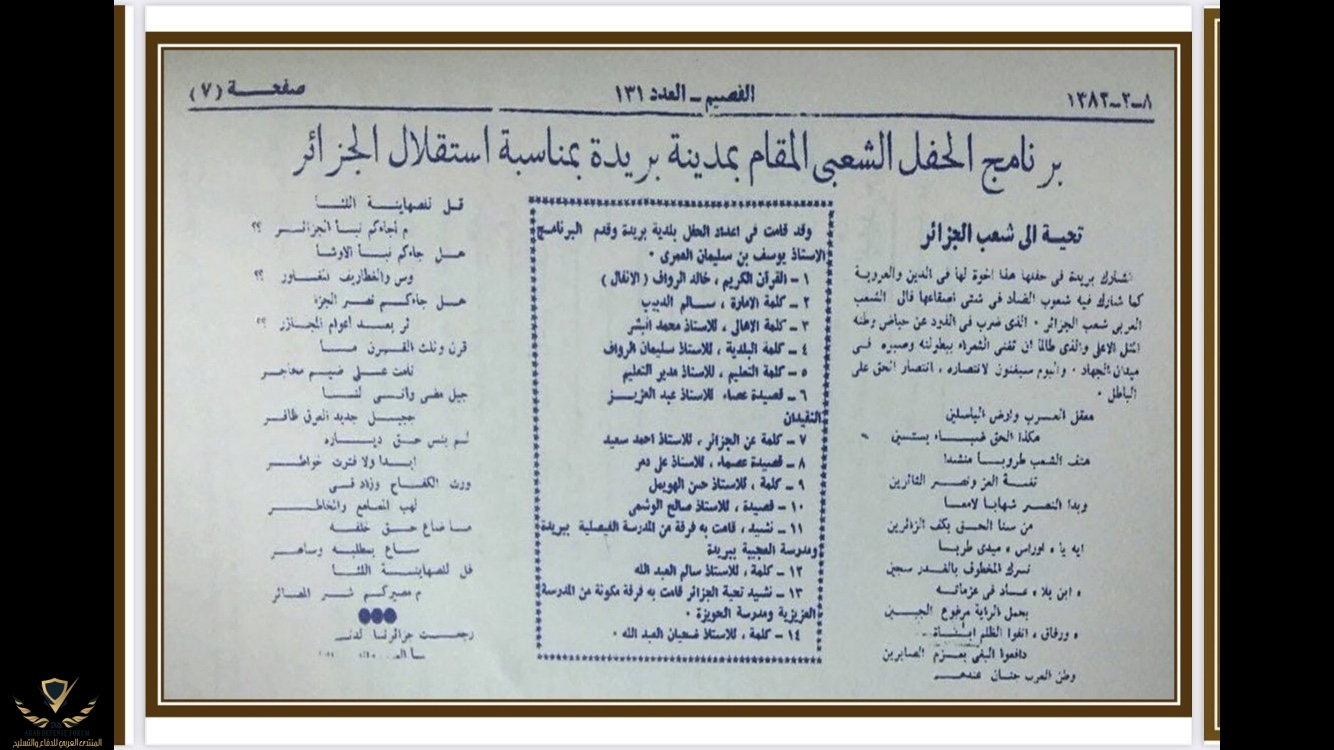 ٨-٢-١٣٨٢
القصيم - العدد ١٣١
صفحة (٧)
برنامج الحفل الشعبى المقام بمدينة بريدة بمناسبة استقلال الجزائر
تحية الى شعب الجزائر
تشارك بريدة فى حفلها هذا اخوة لها فى الدين والعروبة
كما شارك فيه شعوب الضاد فى شتى أصقاعها فال الشعب
العربى شعب الجزائر ٠ الذى ضرب فى الذود عن حياض وطنه
المثل الاعلى والذى طالما ان تغنى الشعراء ببطولته وصبره فى
ميدان الجهاد ٠ واليوم سيغنون لانتصاره ، انتصار الحق على
الباطل ٠
معقل العرب وارض الباسلين
هكذا الحق ضياء يستبين
هتف الشعب طروبا منشدا
نغمة العز ونصر الثائرين
وبدا النصر شهابا لامعا
من سنا الحق بكف الزائرين
ايه يا « اوراس » ميدى طربا
نرك المخطوف بالغدر سجين
« ابن بلا » عاد فى عزماته
يحمل الراية مرفوع الجبين
« ورفاق » انفوا الظلم
دافعوا البغى بعزم الصابرين
وطن العرب جنان عندهم
وقد قامت فى اعداد الحفل بلدية بريدة وقدم البرنامج
الاستاذ يوسف بن سليمان العمرى ٠
١ - القرآن الكريم ، خالد الرواف ( الانفال )
٢ - كلمة الامارة ، سالم الدبيب
٣ - كلمة الاهالى ، للاستاذ محمد البشر
٤ - كلمة البلدية ، للاستاذ سليمان الرواف
٥ - كلمة التعليم ، للاستاذ مدير التعليم
٦ - قصيدة عصماء للاستاذ عبد العزيز
النقيدان
٧ - كلمة عن الجزائر ، للاستاذ احمد سعيد
٨ - قصيدة عصماء ، للاستاذ على دمر
٩ - كلمة ، للاستاذ حسن الهويمل
١٠ - قصيدة ، للاستاذ صالح الوشمى
١١ - نشيد ، قامت به فرقة من المدرسة الفيصلية ببريدة
ومدرسة العجيبة ببريدة
١٢ - كلمة ، للاستاذ سالم العبد الله
١٣ - نشيد تحية الجزائر قامت به فرقة مكونة من المدرسة
العزيزية ومدرسة الحويزة ٠
١٤ - كلمة ، للاستاذ ضحيان العبد الله ٠
قل للصهاينة اللئا
م أجاءكم نبأ الجزائر ؟؟
هل جاءكم نبأ الاونا
وس والغطاريف المغاور ؟؟
هل جاءكم نصر الجزا
ئر بعد أعوام المجازر ؟؟
قرن وثلث القرن ما
نامت على ضيم محاجر
جيل مضى وأتى لنا
جيل جديد العرق ظافر
لم ينس حق دياره
ابدا ولا فترت خواطر
ورث الكفاح وزاد فى
لهب المصامع والمخاطر
ما ضاع حق خلفه
ساع يطلبه وساهر
قل للصهاينة اللئا
م مصيركم شر المصائر
رجعت جزائرنا لدنيا
المنتدى العربي للدفاع والتسليح